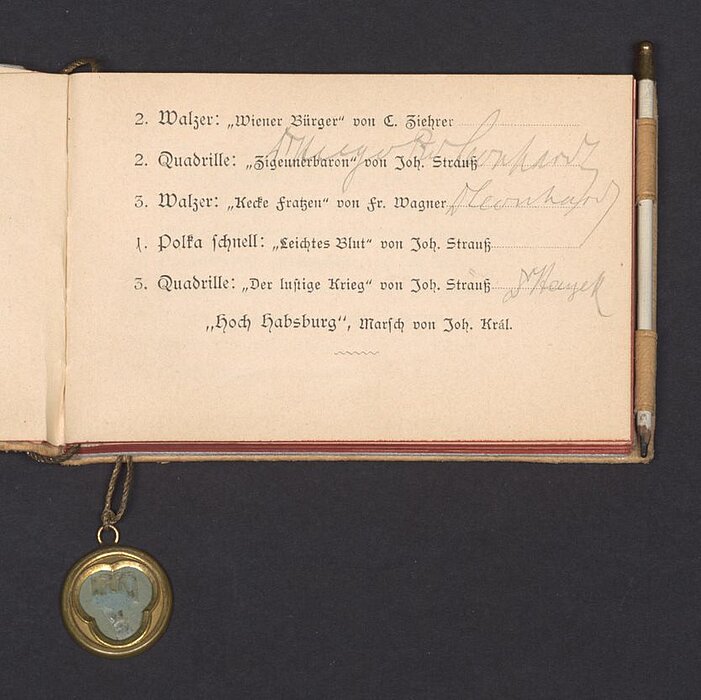 2. Walzer: „Wiener Bürger“ von C. Ziehrer
2. Quadrille: „Zigeunerbaron“ von Joh. Strauß
3. Walzer: „Kecke Fratzen“ von Fr. Wagner Dr Leonhard
1. Polka schnell: „Leichtes Blut“ von Joh. Strauß
3. Quadrille: „Der lustige Krieg“ von Joh. Strauß Dr Hayek
„Hoch Habsburg“, Marsch von Joh. Král.